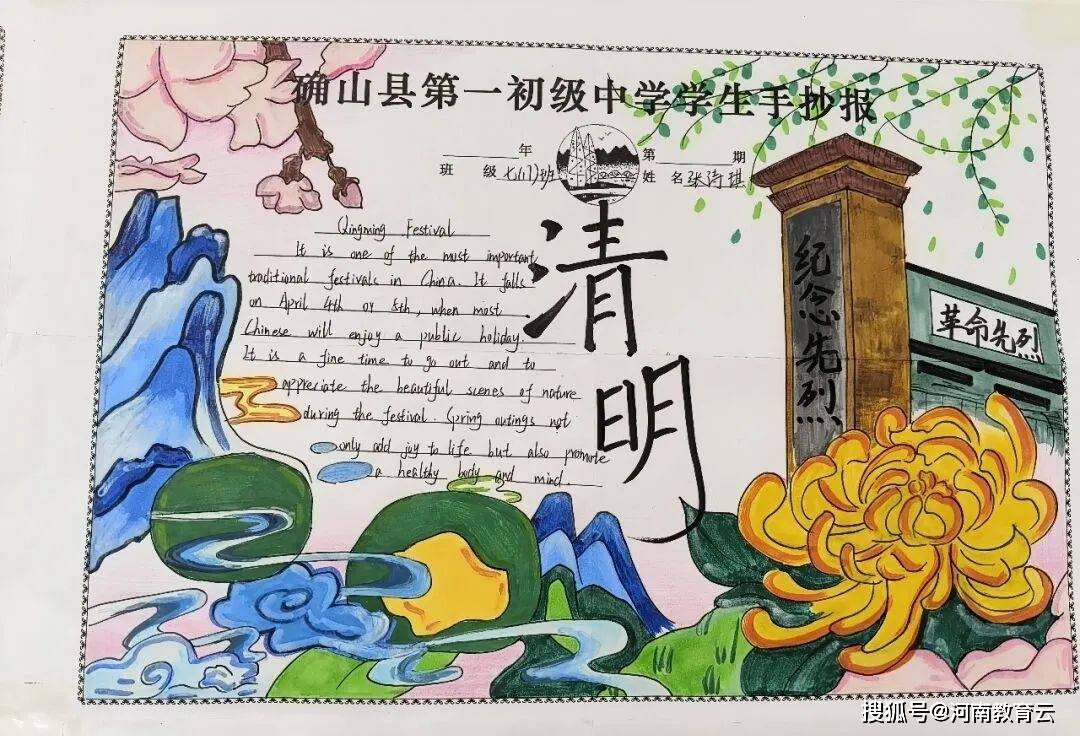 确山县第一初级中学学生手抄报
年 第 期
班 级 七(17)班 姓 名 张诗琪
清明
Qingming Festival
It is one of the most important
traditional festivals in China. It falls
on April 4th or 5th, when most
Chinese will enjoy a public holiday.
It is a fine time to go out and to
appreciate the beautiful scenes of nature
during the festival. Spring outings not
only add joy to life but also promote
a healthy body and mind.
纪念先烈
革命先烈
搜狐号@河南教育云